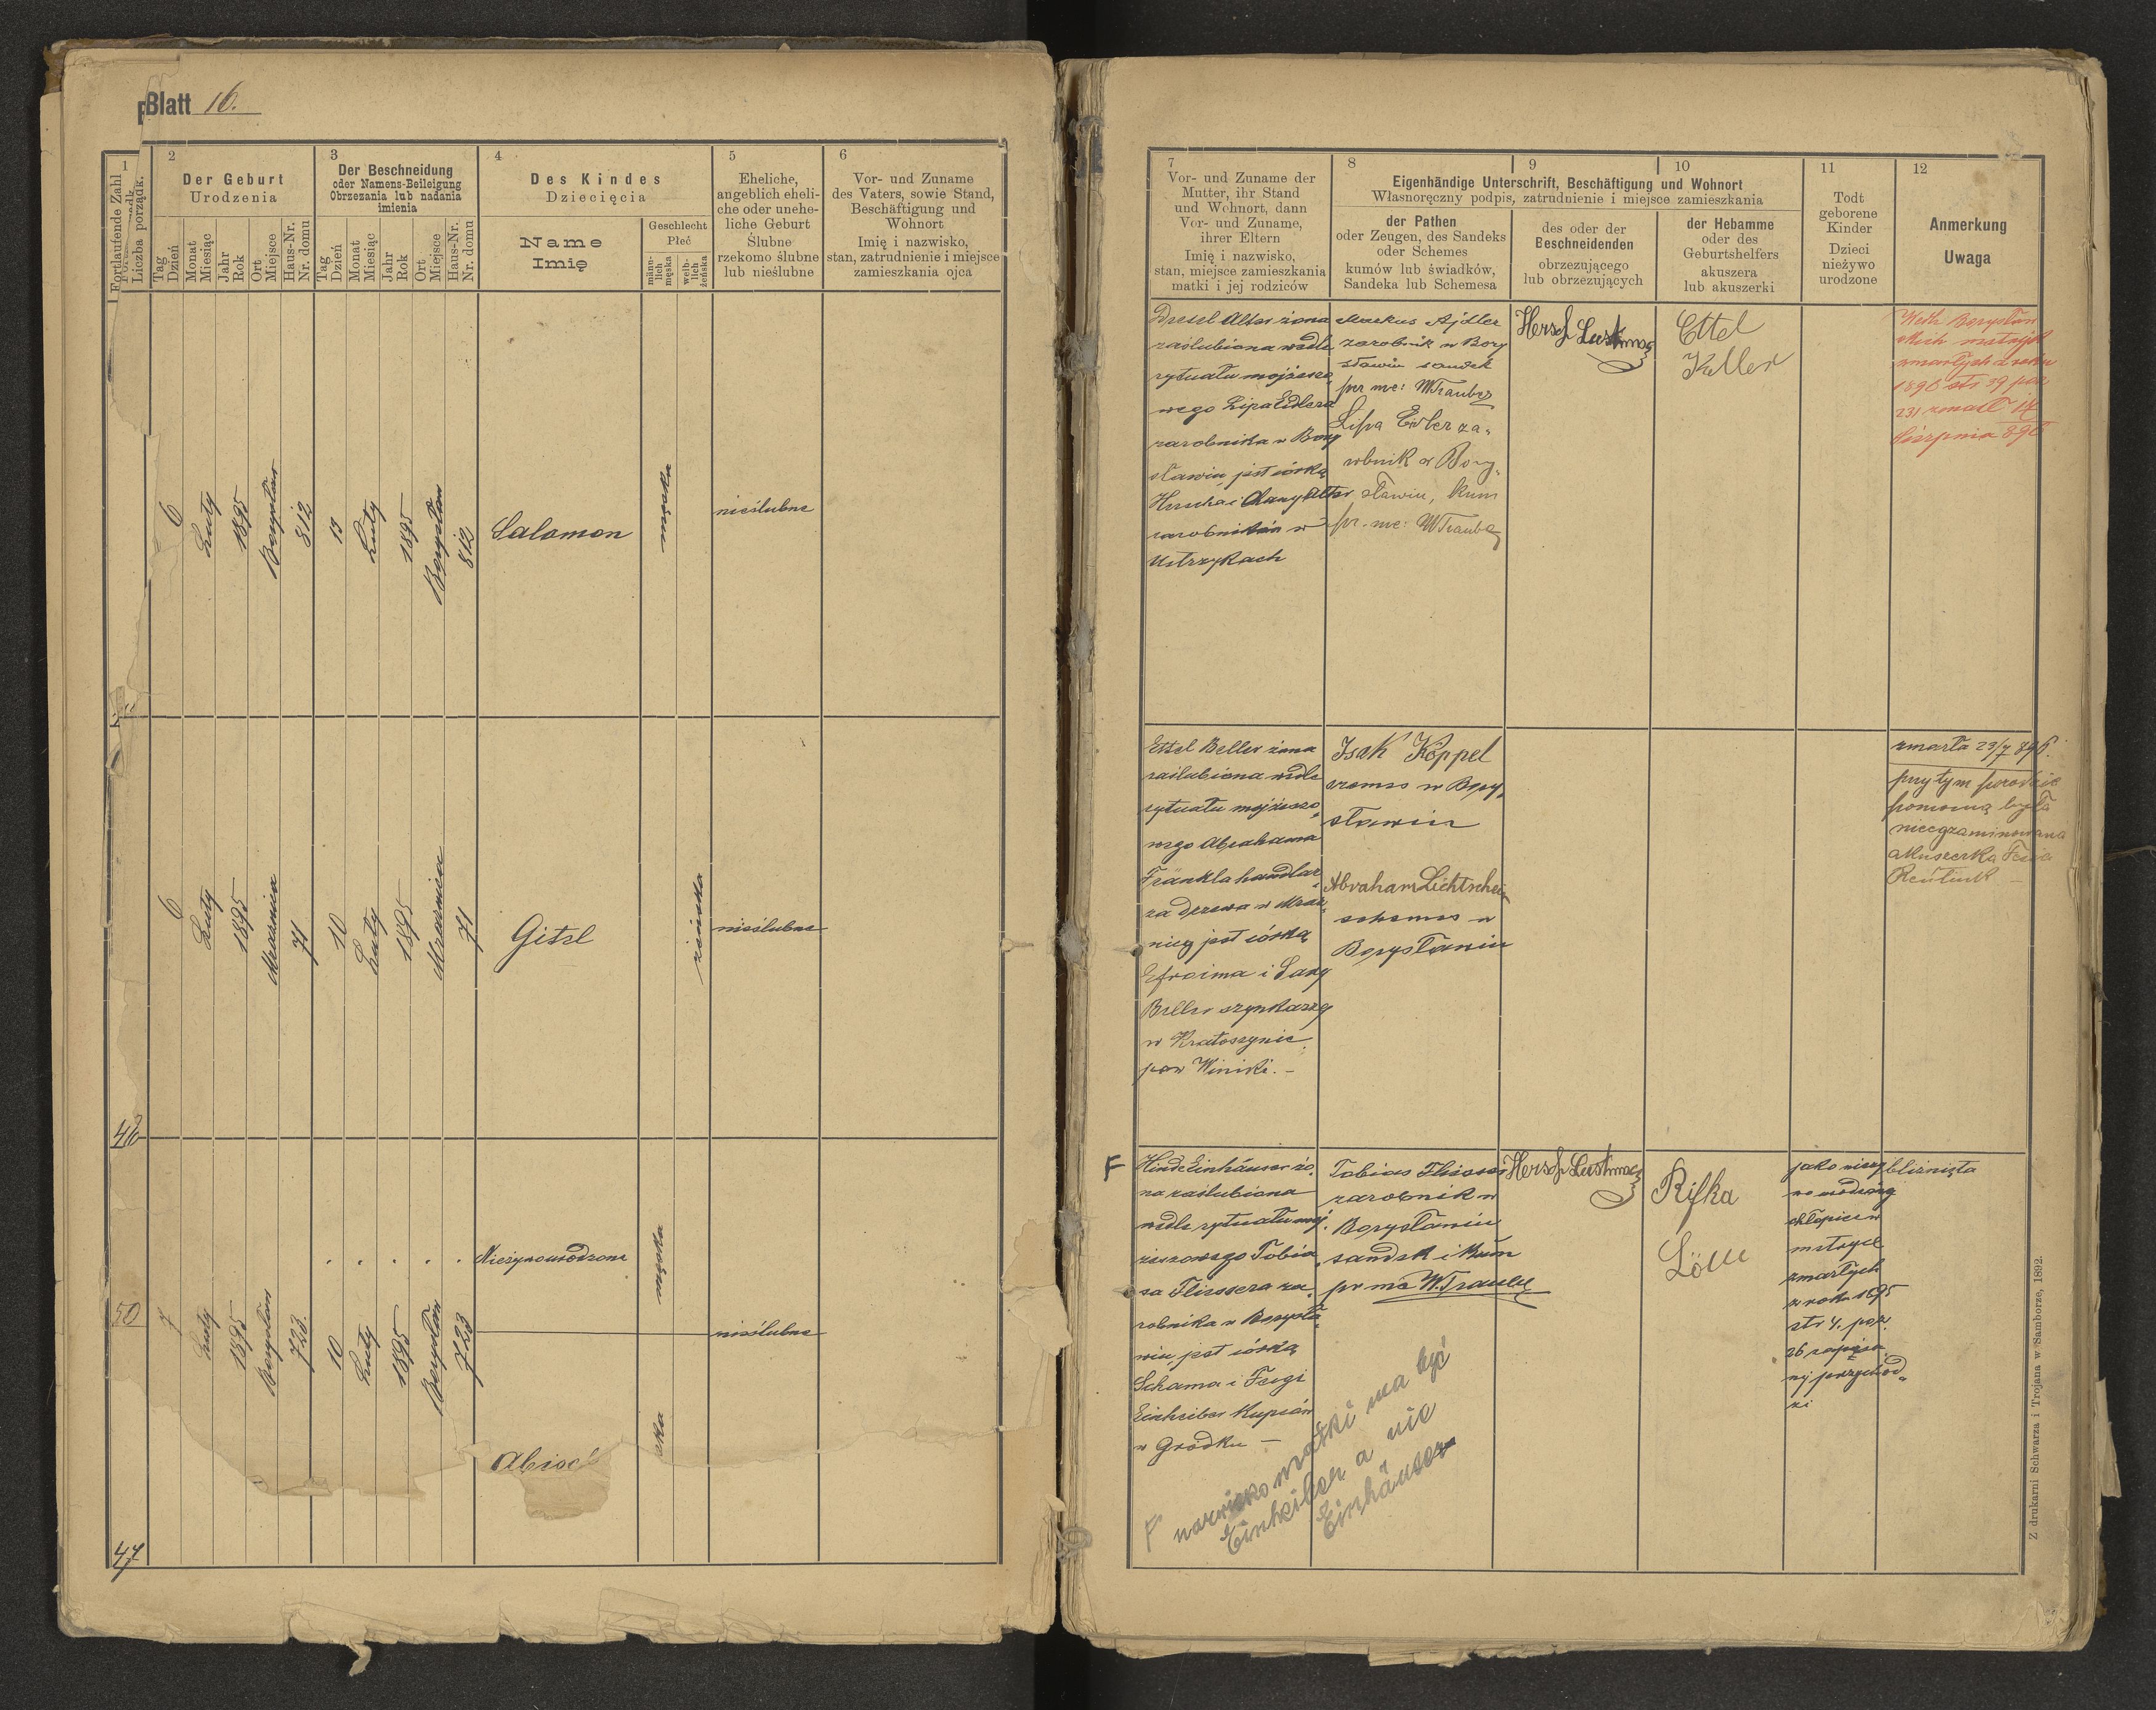 Blatt 16.
1
Fortlaufende Zahl
Liczba porządk.
2
Der Geburt
Urodzenia
Tag
Dzień
Monat
Miesiąc
Jahr
Rok
Ort
Miejsce
Haus-Nr.
Nr. domu
3
Der Beschneidung
oder Namens-Beilegung
Obrzezania lub nadania
imienia
Tag
Dzień
Monat
Miesiąc
Jahr
Rok
Ort
Miejsce
Haus-Nr.
Nr. domu
4
Des Kindes
Dziecięcia
Name
Imię
Geschlecht
Płeć
männ-
lich
męska
weib-
lich
żeńska
5
Eheliche,
angeblich eheli-
che oder unehe-
liche Geburt
Ślubne
rzekomo ślubne
lub nieślubne
6
Vor- und Zuname
des Vaters, sowie Stand,
Beschäftigung und
Wohnort
Imię i nazwisko,
stan, zatrudnienie i miejsce
zamieszkania ojca
6
Luty
1895
Borysław
812
13
Luty
1895
Borysław
812
Salamon
męska
nieślubne
6
Luty
1895
Mraznica
71
10
Luty
1895
Mraznica
71
Gitel
żeńska
nieślubne
46
50
7
Luty
1895
Borysław
723.
10
Luty
1895
Borysław
723
Nieżywourodzone
męska
nieślubne
ska
47
7
Vor- und Zuname der
Mutter, ihr Stand
und Wohnort, dann
Vor- und Zuname,
ihrer Eltern
Imię i nazwisko,
stan, miejsce zamieszkania
matki i jej rodziców
8
9
10
Eigenhändige Unterschrift, Beschäftigung und Wohnort
Własnoręczny podpis, zatrudnienie i miejsce zamieszkania
der Pathen
oder Zeugen, des Sandeks
oder Schemes
kumów lub świadków,
Sandeka lub Schemesa
des oder der
Beschneidenden
obrzezującego
lub obrzezujących
der Hebamme
oder des
Geburtshelfers
akuszera
lub akuszerki
11
Todt
geborene
Kinder
Dzieci
nieżywo
urodzone
12
Anmerkung
Uwaga
Dresel Alter żona
zaślubiona wedle
rytuału mojżeszo
wego Lipa Eidlera
zarobnika w Bory
sławiu jest córką
Herscha i Chany Alter
zarobników w
Ustrzykach
Markus Ajdler
zarobnik w Bory
sławiu sandek
per me: MTraube
Lipa Eidler za-
robnik w Bory-
sławiu, kum
pr. me: MTraube
Hersch Lustman
Ettel
Keller
zmarłych z roku
1896 str 39 poz
231 zmarł 14
Sierpnia 896
Ettel Beller żona
zaślubiona wedle
rytuału mojżeszo
wego Abrahama
Fränkla handlar
za drzewa w Mraz
nicy jest córką
Efroima i Sary
Beller szynkarzy
w Kratoszynie
pow Winiki. -
Isak Köppel
szames w Bory-
sławiu
Abraham Lichtschein
schames w
Borysławiu
zmarła 23/7 896.
przy tym porodzie
pomocną była
nieegzaminowana
akuszerka
F
Hinde Einhäuser żo
na zaślubiona
wedle rytuału moj
żeszowego Tobia
sa Fliessera za
robnika w Borysła
wiu, jest córką
Schama i Feigi
Einheiber kupców
w Gródku -
Tobias Fliesser
zarobnik w
Borysławiu
sandek i kum
pr me W.Traube
Hersch Lustman
Rifka
Löw
jako nieży
wo urodzony
chłopiec w
metryce
zmarłych
z roku 1895
str 4. poz.
26 zapisa
ny przychod-
zi
bliźnięta
F nazwisko matki ma być
Einheiber a nie
Einhäuser
Z drukarni Schwarza i Trojana w Samborze, 1892.